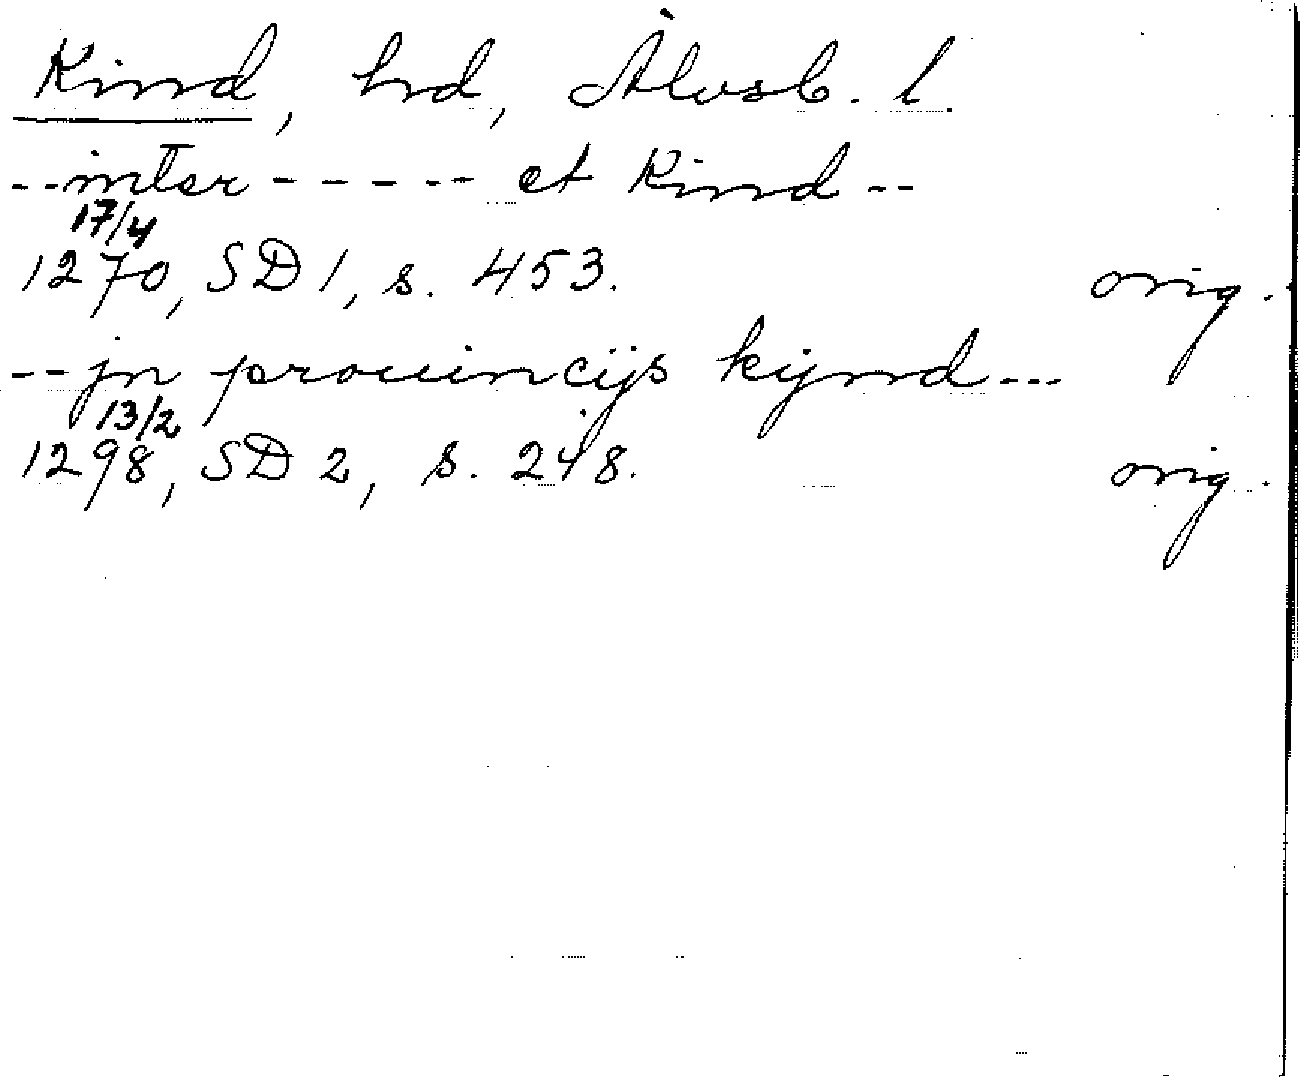 Kind, hd, Älvsb. l.
--inter ----- et Kind--
17/4
1270, SD 1, s. 453. orig.
--jn prouincijs kijnd---
13/2
1298, SD 2, s. 248. orig.